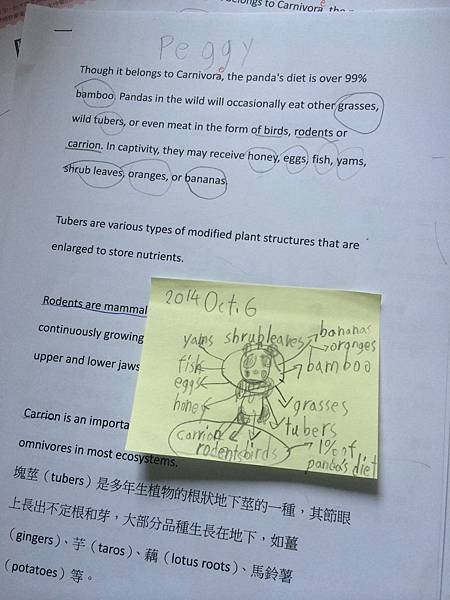 Peggy
Though it belongs to Carnivora, the panda's diet is over 99%
bamboo. Pandas in the wild will occasionally eat other grasses,
wild tubers, or even meat in the form of birds, rodents or
carrion. In captivity, they may receive honey, eggs, fish, yams,
shrub leaves, oranges, or bananas.
Tubers are various types of modified plant structures that are
enlarged to store nutrients.
Rodents are mammal
continuously growing
upper and lower jaws
Carrion is an importa
omnivores in most ecosystems.
塊莖（tubers）是多年生植物的根狀地下莖的一種，其節眼
上長出不定根和芽，大部分品種生長在地下，如薑
（gingers）、芋（taros）、藕（lotus roots）、馬鈴薯
（potatoes）等。
2014 Oct. 6
yams shrub leaves bananas
oranges
fish bamboo
eggs
honey grasses
tubers
carrion
rodents birds 1% of
panda's diet